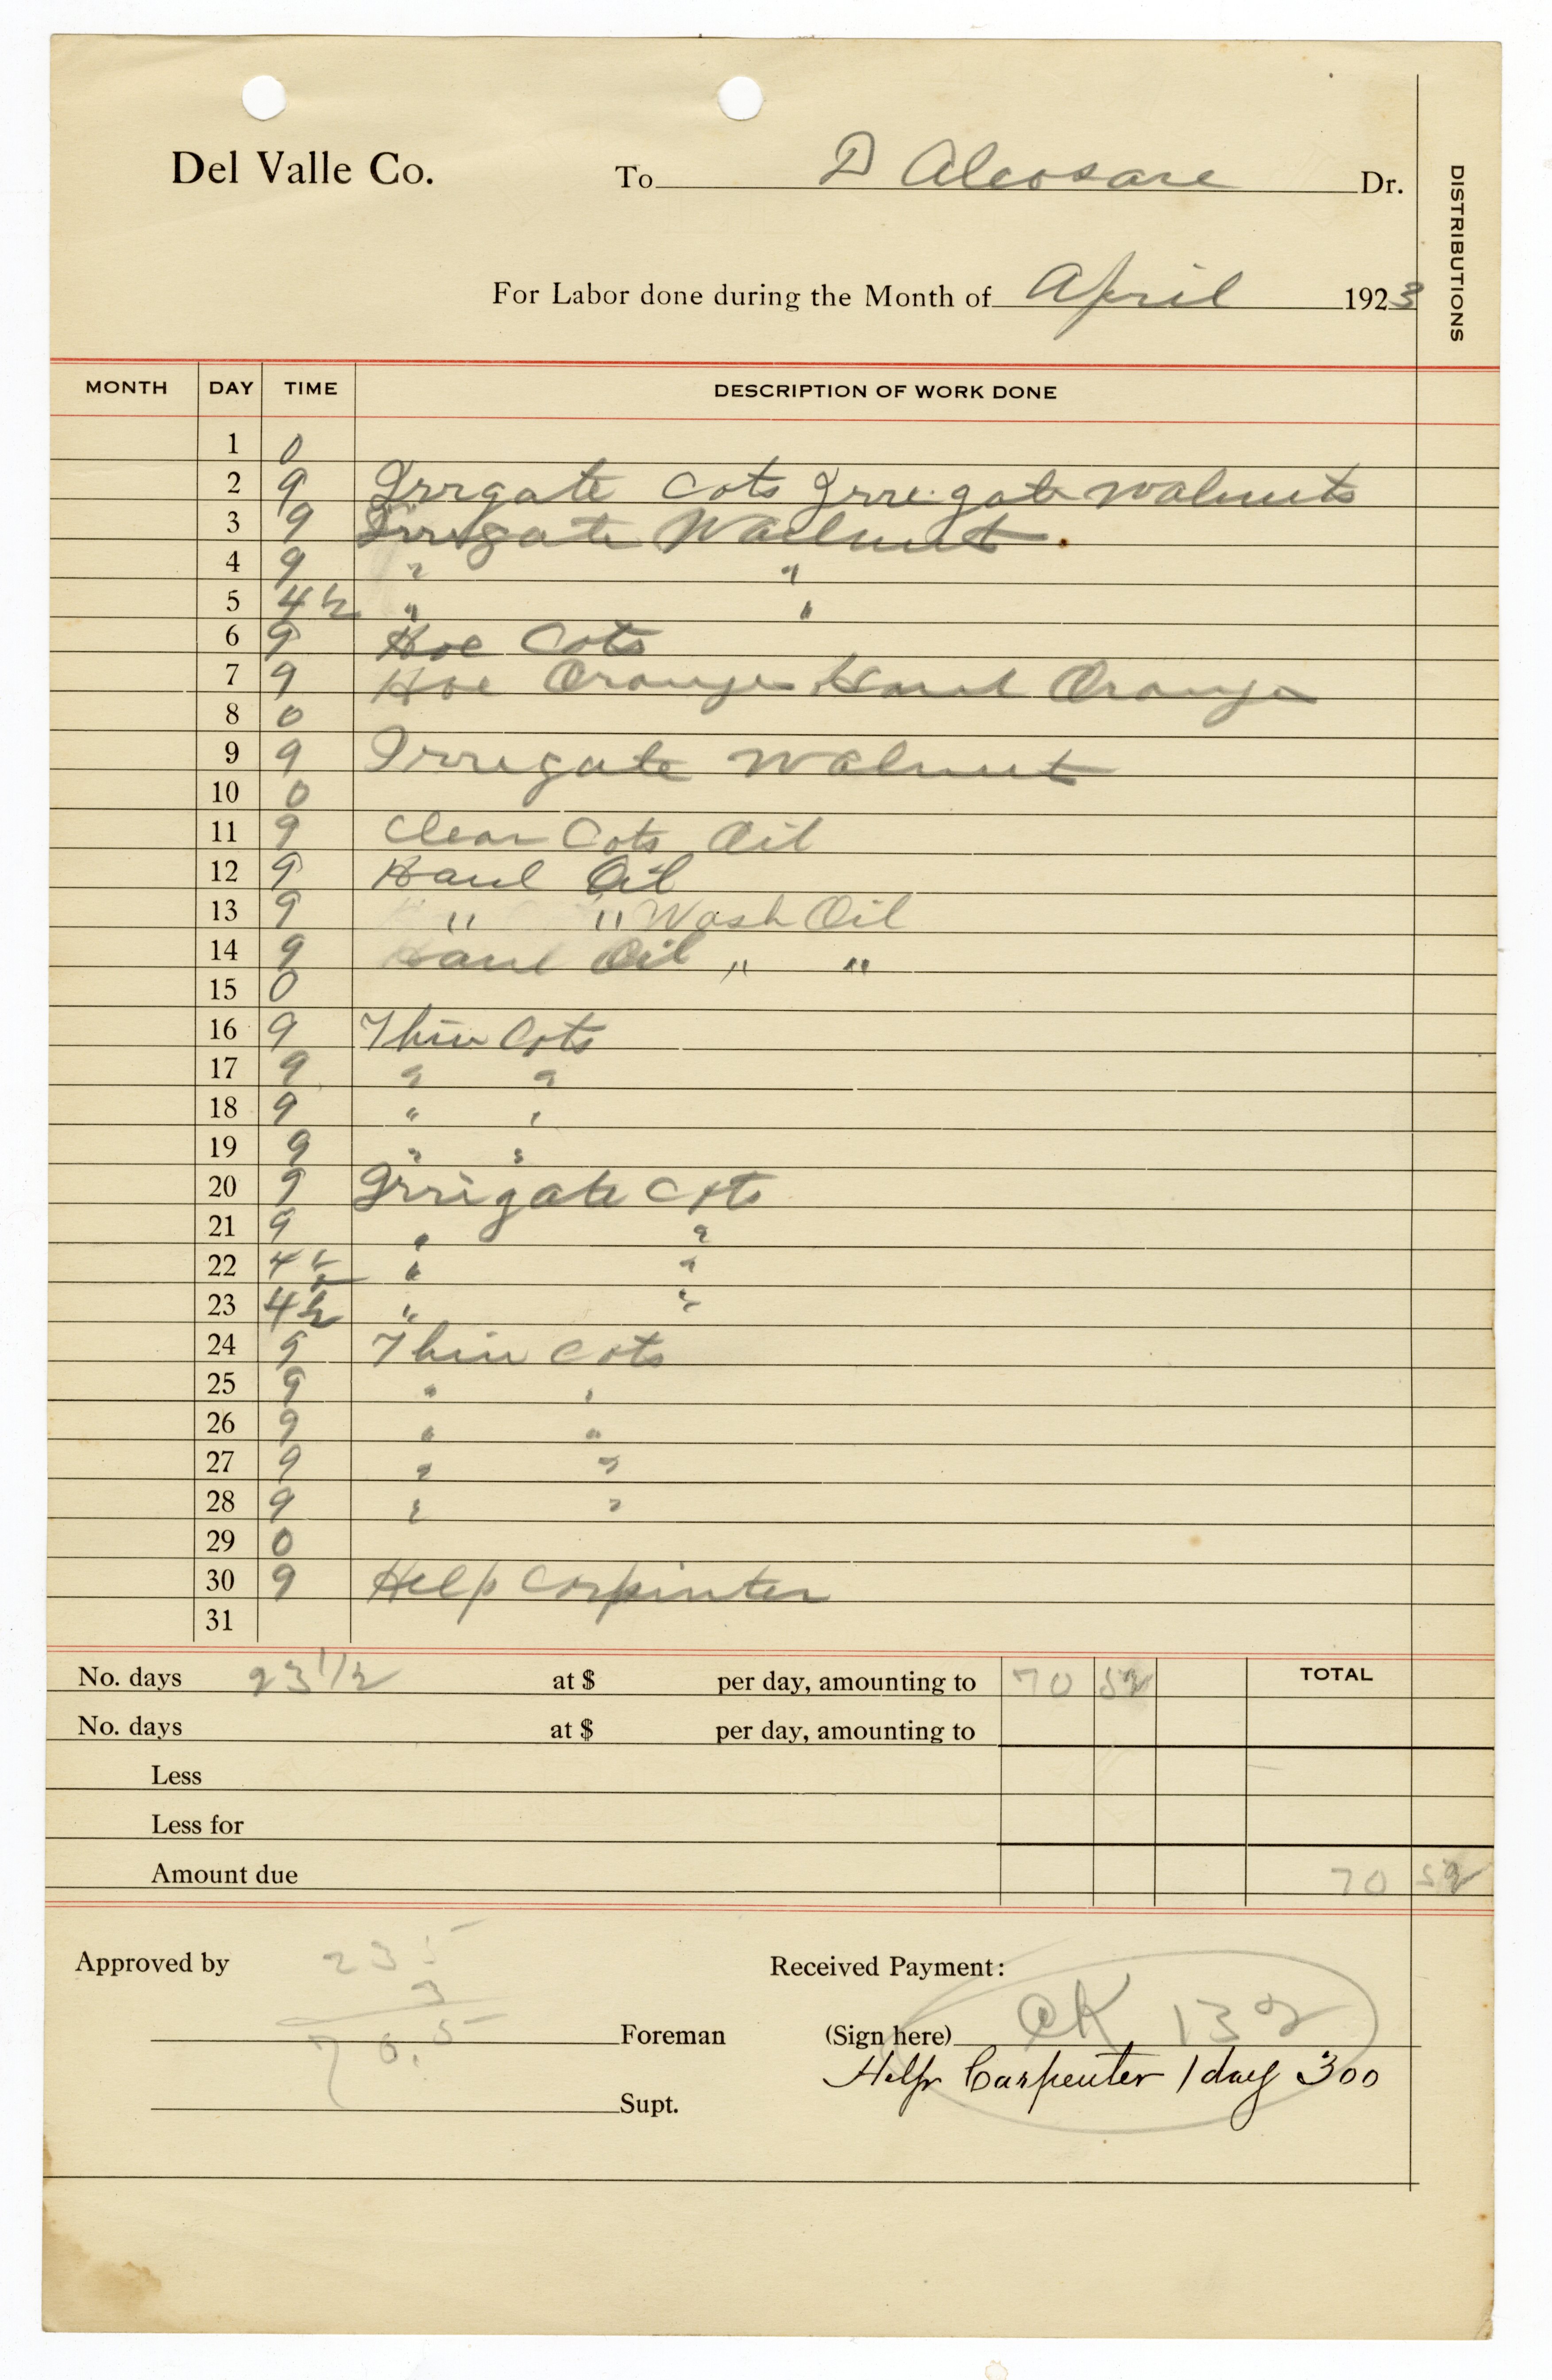 Del Valle Co. To D Aleosare Dr.
DISTRIBUTIONS
For Labor done during the Month of April 1923
MONTH DAY TIME DESCRIPTION OF WORK DONE
1 0
2 9 Irrgate Cots Irregate walnuts
3 9 Irrigate Wallnut
4 9 " "
5 4½ " "
6 9 Hoe Cots
7 9 Hoe Oranges Haul Oranges
8 0
9 9 Irrigate Walnut
10 0
11 9 Clean Cots Oil
12 9 Haul Oil
13 9 " " Wash Oil
14 9 Haul Oil " "
15 0
16 9 Thin Cots
17 9 " "
18 9 " "
19 9 " "
20 9 Irrigate Cots
21 9 " "
22 4½ " "
23 4½ " "
24 9 Thin Cots
25 9 " "
26 9 " "
27 9 " "
28 9 " "
29 0
30 9 Help Corpinter
31
No. days 23 1/2 at $ per day, amounting to 70 52 TOTAL
No. days at $ per day, amounting to
Less
Less for
Amount due 70 52
Approved by 23 5 Received Payment:
3
70.5 Foreman (Sign here) CK 132
Help Carpenter 1 day 3 00
Supt.